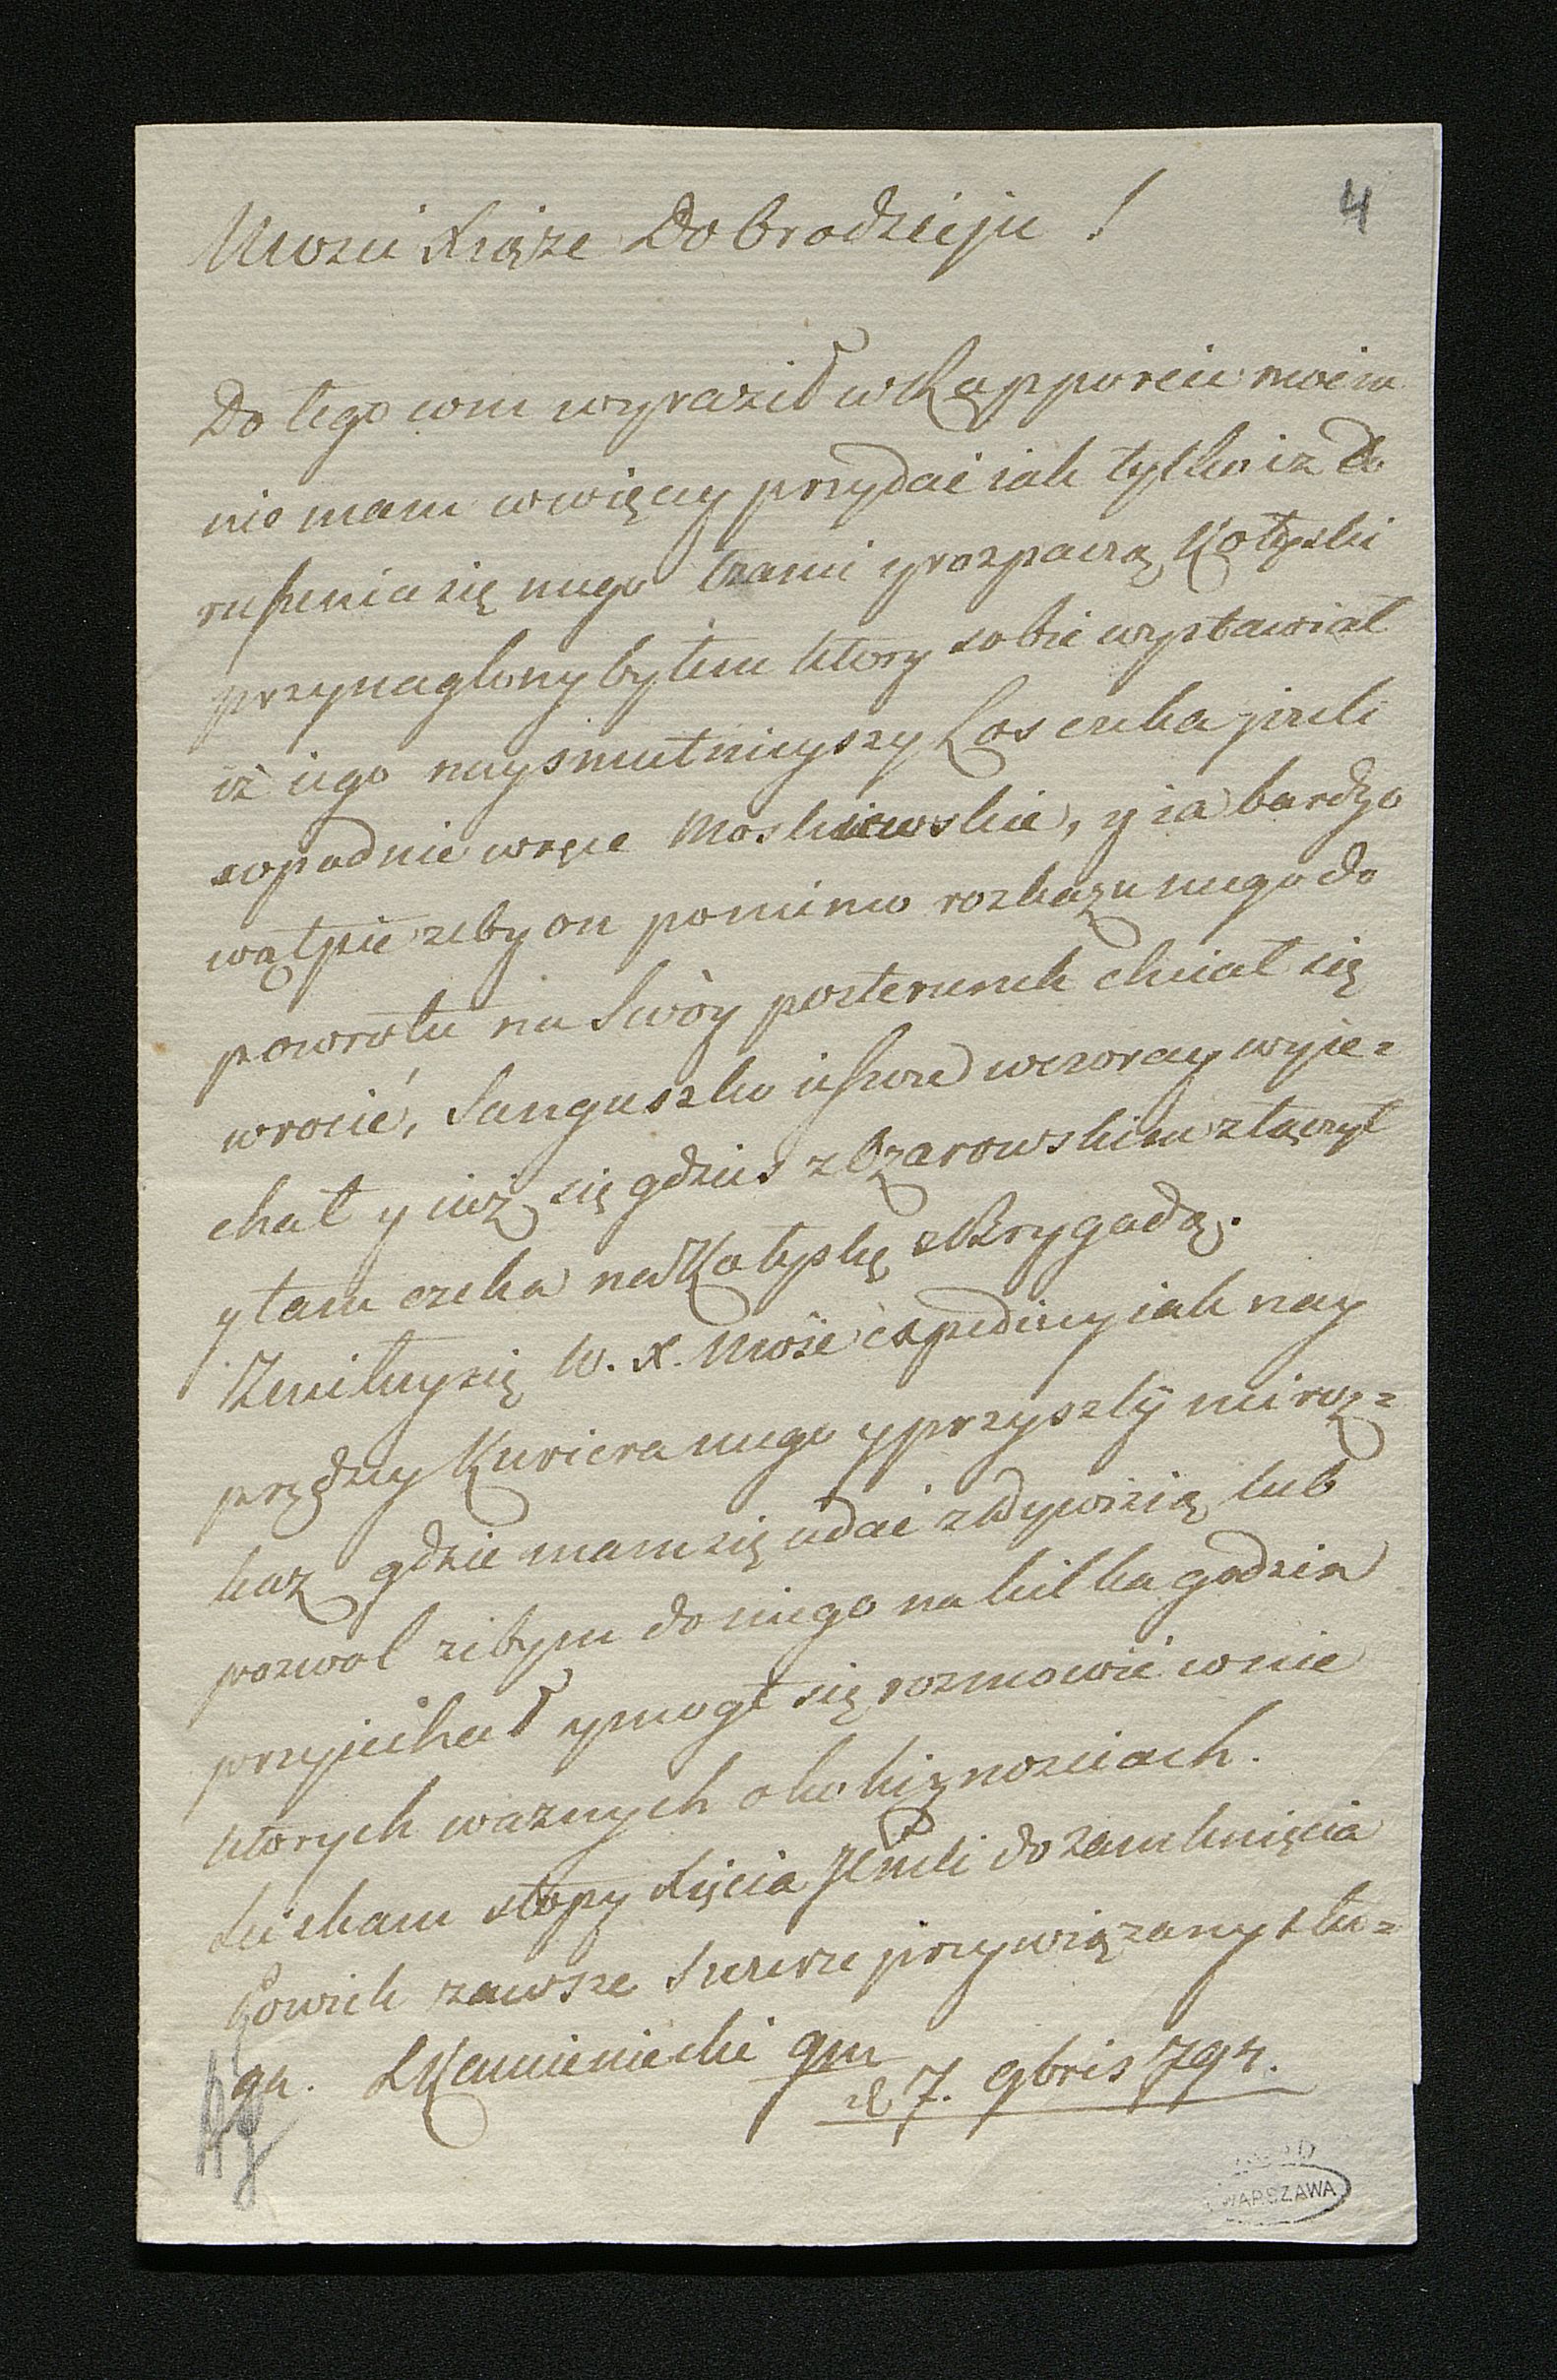 4
Mości Xiąże Dobrodzieju !
Do tego com wyraził w Rapporcie moim
nie mam wwięcy przydać iak tylko iz do
ruszenia się mego łzami y rozpaczą Kołyski
przynaglony byłem ktory sobie wystawiał
iż iego naysmutnieyszy Los czeka jezeli
wpadnie wręce Moskiewskie, y ia bardzo
wątpie zeby on pomimo rozkazu mego do
powrotu na Swòy posterunek chciał się
wrocić, Sanguszko ieszcze wczoray wyje=
chał y iuż się gdzies z Ożarowskim złączył
y tam czeka na Kołyskę z Brygadą.
Zmiłuy się W. X. Mość expediuy iak nay
prędzey Kuriera mego y przyszliy mi roz=
kaz gdzie mam się udać z Dywizią lub
pozwol zebym do niego na kilka godzin
przyjechał y mogł się rozmowić w nie
ktorych waznych okolicznosciach.
Sciskam stopy Xięcia Jmci do zamknięcia
powiek zawsze Szczerze przywiązany słu=
ga. LKamieniecki gm
d 7. 9bris 794.
WARSZAWA